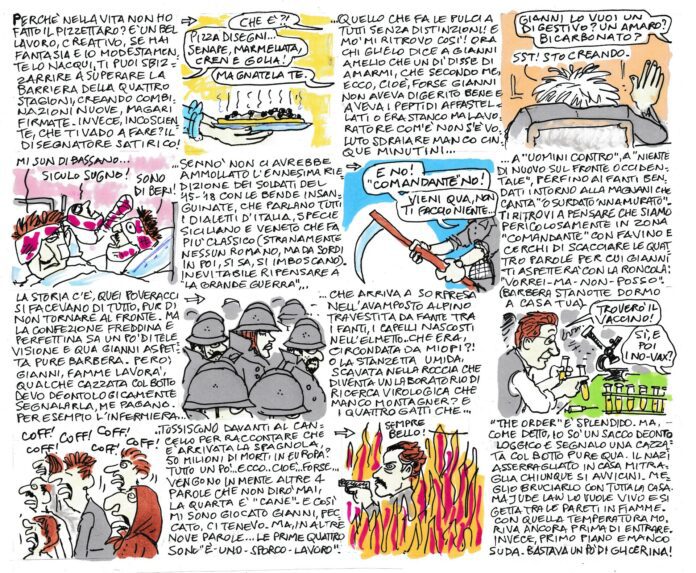 PERCHÉ NELLA VITA NON HO
FATTO IL PIZZETTARO? È UN BEL
LAVORO, CREATIVO, SE HAI
FANTASIA E IO MODESTAMEN,
TE LO NACQUI, TI PUOI SBIZ-
ZARRIRE A SUPERARE LA
BARRIERA DELLA QUATTRO
STAGIONI, CREANDO COMBI,
NAZIONI NUOVE, MAGARI
FIRMATE. INVECE, INCOSCIEN,
TE, CHE TI VADO A FARE? IL
DISEGNATORE SATIRICO!
CHE È?!
PIZZA DISEGNI...
SENAPE, MARMELLATA,
CREN E GOLIA!
MAGNATZELA TE.
...QUELLO CHE FA LE PULCI A
TUTTI SENZA DISTINZIONI! E
MO' MI RITROVO COSÌ! ORA
CHI GLIELO DICE A GIANNI
AMELIO CHE UN DÌ DISSE DI
AMARMI, CHE SECONDO ME,
ECCO, CIOÈ, FORSE GIANNI
NON AVEVA DIGERITO BENE E
AVEVA I PEPTIDI AFFASTEL-
LATI O ERA STANCO MA LAVO,
RATORE COM'È NON S'È VO,
LUTO SDRAIARE MANCO CIN,
QUE MINUTINI...
GIANNI LO VUOI UN
DIGESTIVO? UN AMARO?
BICARBONATO?
SST! STO CREANDO.
MI SUN DI BASSANO...
SICULO SUGNO!
SONO
DI BERI!
...SENNÒ NON CI AVREBBE
AMMOLLATO L'ENNESIMA RIE,
DIZIONE DEI SOLDATI DEL
'15-'18 CON LE BENDE INSAN-
GUINATE, CHE PARLANO TUTTI
I DIALETTI D'ITALIA, SPECIE
SICILIANO E VENETO CHE FA
PIÙ CLASSICO (STRANAMENTE
NESSUN ROMANO, MA DA SORDI
IN POI, SI SA, SI IMBOSCANO).
INEVITABILE RIPENSARE A
"LA GRANDE GUERRA"...
E NO!
"COMANDANTE" NO!
VIENI QUA, NON
TI FACCIO NIENTE...
...A "UOMINI CONTRO", A "NIENTE
DI NUOVO SUL FRONTE OCCIDEN,
TALE", PERFINO AI FANTI BEN,
DATI INTORNO ALLA MAGNANI CHE
CANTA "O SURDATO 'NNAMURATO".
TI RITROVI A PENSARE CHE SIAMO
PERICOLOSAMENTE IN ZONA
"COMANDANTE" CON FAVINO E
CERCHI DI SCACCIARE LE QUAT
TRO PAROLE PER CUI GIANNI
TI ASPETTERÀ CON LA RONCOLA:
"VORREI-MA-NON-POSSO".
(BARBERA STANOTTE DORMO
A CASA TUA)
LA STORIA C'È, QUEI POVERACCI
SI FACEVANO DI TUTTO, PUR DI
NON TORNARE AL FRONTE. MA
LA CONFEZIONE FREDDINA E
PERFETTINA SA UN PO' DI TELE
VISIONE E QUA GIANNI ASPET,
TA PURE BARBERA. PERÒ,
GIANNI, FAMME LAVORÀ,
QUALCHE CAZZATA COL BOTTO
DEVO DEONTOLOGICAMENTE
SEGNALARLA, ME PAGANO.
PER ESEMPIO L'INFERMIERA...
...CHE ARRIVA A SORPRESA
NELL'AVAMPOSTO ALPINO
TRAVESTITA DA FANTE TRA
FANTI, I CAPELLI NASCOSTI
NELL'ELMETTO. CHE ERA,
CIRCONDATA DA MIOPI?!
O LA STANZETTA UMIDA,
SCAVATA NELLA ROCCIA CHE
DIVENTA UN LABORATORIO DI
RICERCA VIROLOGICA CHE
MANCO MONTAGNER? E
I QUATTRO GATTI CHE...
TROVERÒ IL
VACCINO!
SÌ, E
POI
I NO-VAX?
COFF! COFF!
COFF! COFF!
COFF!
...TOSSISCONO DAVANTI AL CAN,
CELLO PER RACCONTARE CHE
È ARRIVATA LA SPAGNOLA,
50 MILIONI DI MORTI IN EUROPA?
TUTTO UN PO'...ECCO...CIOÈ...FORSE...
VENGONO IN MENTE ALTRE 4
PAROLE CHE NON DIRÒ MAI,
LA QUARTA È "CANE". E COSÌ
MI SONO GIOCATO GIANNI, PEC,
CATO, CI TENEVO. MA, IN ALTRE
NOVE PAROLE... LE PRIME QUATTRO
SONO "È-UNO-SPORCO-LAVORO".
SEMPRE
BELLO!
"THE ORDER" È SPLENDIDO. MA,
COME DETTO, IO SO' UN SACCO DEONTO
LOGGECO E SEGNALO UNA CAZZA,
TA COL BOTTO PURE QUA. IL NAZI
ASSERRAGLIATO IN CASA MITRA,
GLIA CHIUNQUE SI AVVICINI. ME,
GLIO BRUCIARLO CON TUTTA LA CASA.
MA JUDE LAW LO VUOLE VIVO E SI
GETTA TRA LE PARETI IN FIAMME.
CON QUELLA TEMPERATURA MO,
RIVA ANCORA PRIMA DI ENTRARE.
INVECE, PRIMO PIANO E MANCO
SUDA. BASTAVA UN PO' DI GLICERINA!